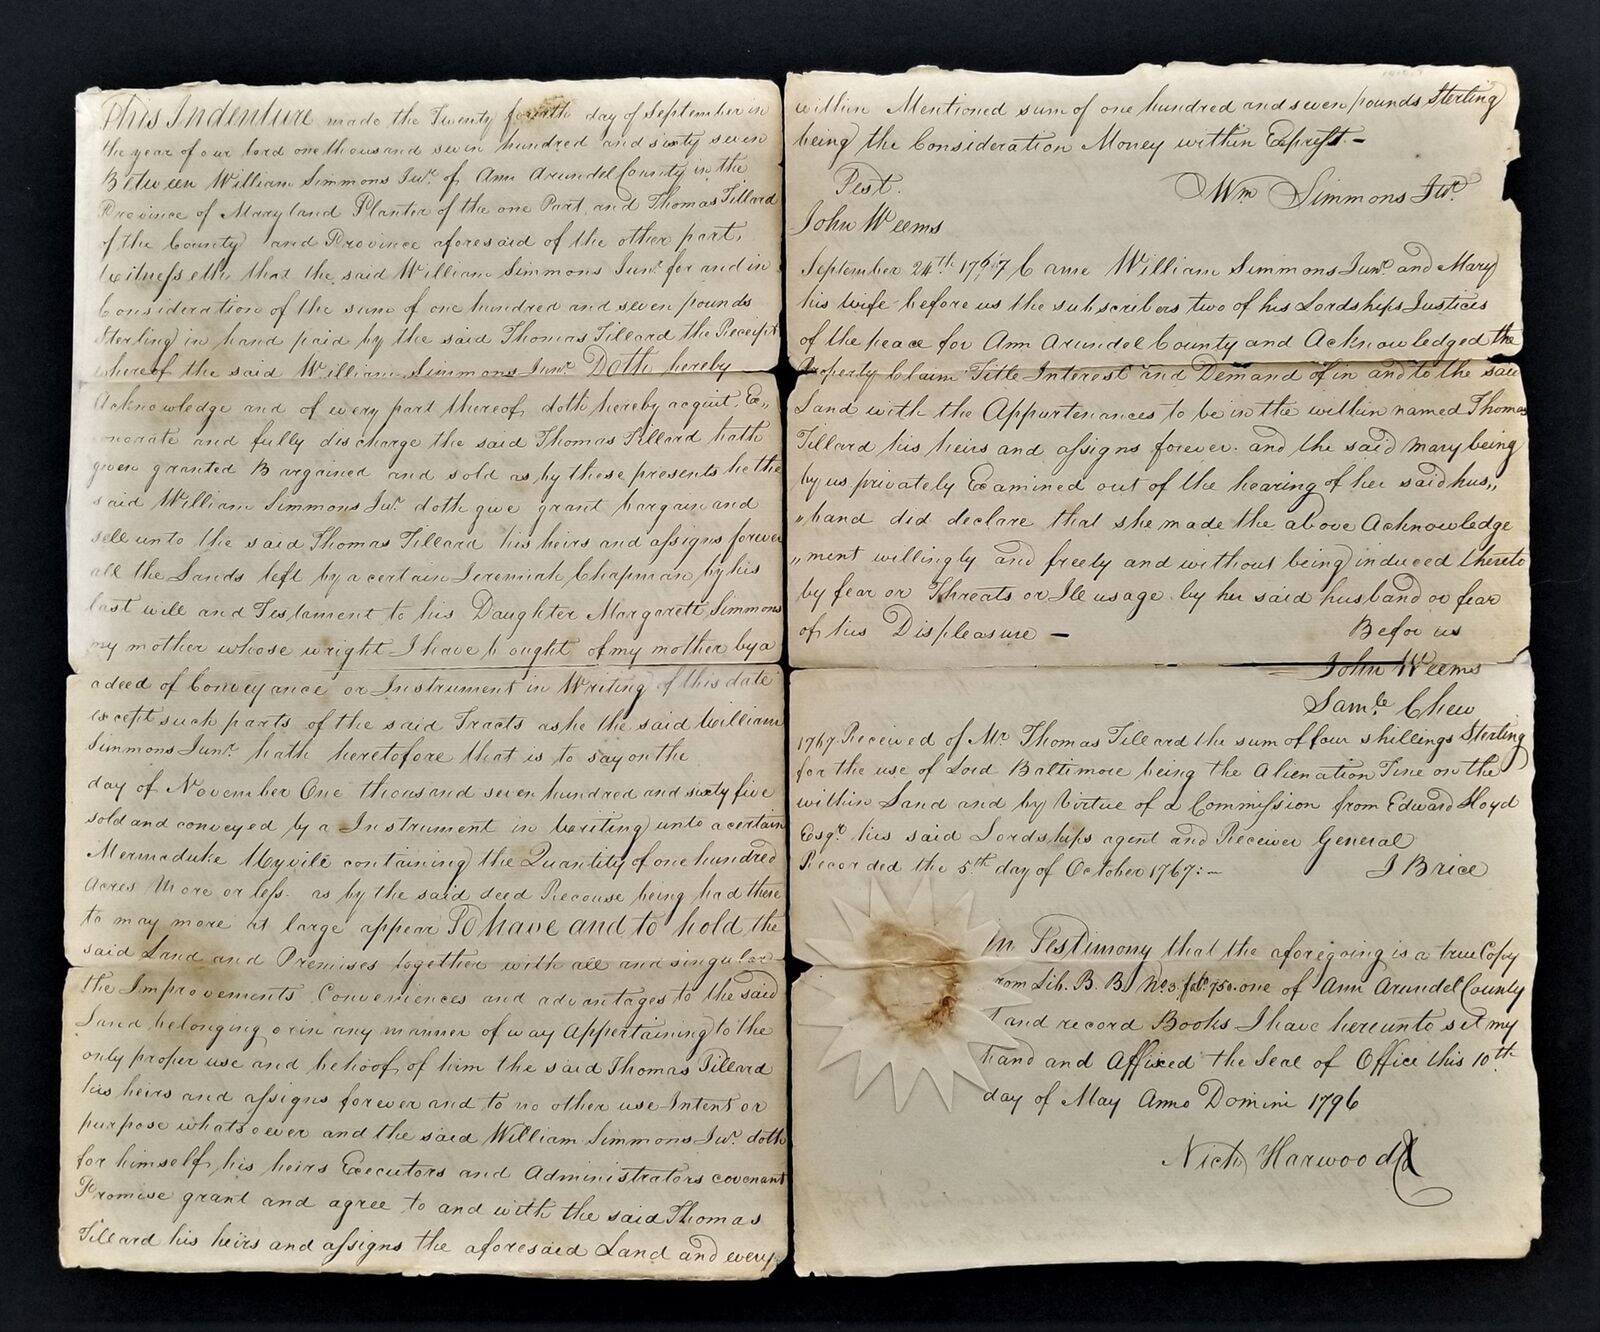 This Indenture made the Twenty fourth day of September in
the year of our lord one thousand seven hundred and sixty seven
Between William Simmons Junr. of Ann Arundel County in the
Province of Maryland Planter of the one Part, and Thomas Tillard
of the County and Province aforesaid of the other part,
Witnesseth that the said William Simmons Junr. for and in
Consideration of the sum of one hundred and seven pounds
Sterling in hand paid by the said Thomas Tillard the Receipt
whereof the said William Simmons Junr. Doth hereby
Acknowledge and of every part thereof doth hereby acquit, Ex,,
onorate and fully discharge the said Thomas Tillard hath
given granted Bargained and sold as by these presents he the
said William Simmons Junr. doth give grant bargain and
sell unto the said Thomas Tillard his heirs and assigns forever
all the Lands left by a certain Jeremiah Chapman by his
last will and Testament to his Daughter Margarett Simmons
my mother whose wright I have bought of my mother by a
a deed of Conveyance or Instrument in Writing of this date
except such parts of the said Tracts as he the said William
Simmons Junr. hath heretofore that is to say on the
day of November One thousand seven hundred and sixty five
sold and conveyed by a Instrument in Writing unto a certain
Mermaduke Wyvile containing the Quantity of one hundred
Acres More or less as by the said deed Recouse being had there
to may more at large appear To have and to hold the
said Land and Premises together with all and singular
the Improvements Conveniences and advantages to the said
Land belonging or in any manner of way Appertaining to the
only proper use and behoof of him the said Thomas Tillard
his heirs and assigns forever and to no other use Intent or
purpose whatsoever and the said William Simmons Junr. doth
for himself, his heirs Executors and Administrators covenant
Promise grant and agree to and with the said Thomas
Tillard his heirs and assigns the aforesaid Land and every
within Mentioned sum of one hundred and seven pounds Sterling
being the Consideration Money within Exprest. –
Test. Wm Simmons Junr.
John Weems
September 24th 1767 Came William Simmons Junr. and Mary
his wife before us the subscribers two of his Lordships Justices
of the peace for Ann Arundel County and Acknowledged the
Property Claim Title Interest and Demand of in and to the said
Land with the Appurtenances to be in the within named Thomas
Tillard his heirs and assigns forever. and the said mary being
by us privately Examined out of the hearing of her said hus,,
,,band did declare that she made the above Acknowledge
,,ment willingly and freely and without being induced thereto
by fear or Threats or Ill usage by her said husband or fear
of his Displeasure – Befor us
John Weems
Samle. Chew
1767. Received of Mr. Thomas Tillard the sum of four shillings Sterling
for the use of Lord Baltimore being the Alienation Fine on the
within Land and by Virtue of a Commission from Edward Lloyd
Esqr. his said Lordships agent and Receiver General
Recorded the 5th. day of October 1767:– J Brice
In Testimony that the aforegoing is a true Copy
from Lib. B. B. No. 3. folo. 750. one of Ann Arundel County
and record Books I have hereunto set my
hand and Affixed the Seal of Office this 10th
day of May Anno Domini 1796
Nich Harwood